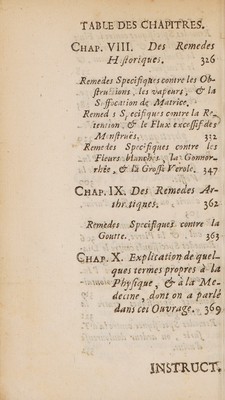 TABLE DES CHAPITRES.
CHAP. VIII. Des Remedes
Histeriques. 326
Remedes Specifiques contre les Ob-
structions, les vapeurs, & la
Suffocation de Matrice.
Remedes Specifiques contre la Re-
tension, & le Flux excessif des
Menstruës. 332
Remedes Specifiques contre les
Fleurs blanches, la Gonnor-
rhée, & la Grosse Verole. 347
CHAP. IX. Des Remedes Ar-
thritiques. 362
Remédes Specifiques contre la
Goutte. 363
CHAP. X. Explication de quel-
ques termes propres à la
Physique, & à la Me-
decine, dont on a parlé
dans cet Ouvrage. 369
INSTRUCT.